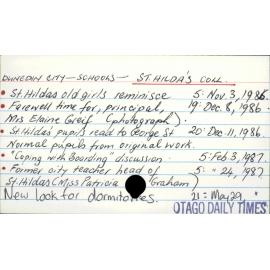 DUNEDIN CITY - SCHOOLS - ST. HILDA'S COLL.
• St. Hildas old girls reminisce 5: Nov. 3, 1986.
• Farewell time for, principal, 19: Dec. 8, 1986.
Mrs Elaine Greif (photograph).
• St Hilda's pupils read to George St 20: Dec. 11, 1986.
Normal pupils from original work.
• "Coping with Boarding" discussion. 5: Feb 3, 1987.
• Former city teacher head of 5: " 24, 1987
St. Hildas (Miss Patricia Graham)
New look for dormitories. 21: May 29,
OTAGO DAILY TIMES